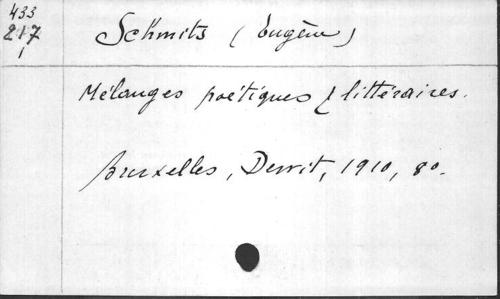 433
217
1
Schmits (Eugène)
Mélanges poétiques & littéraires.
Bruxelles, Dewit, 1910, 8o.